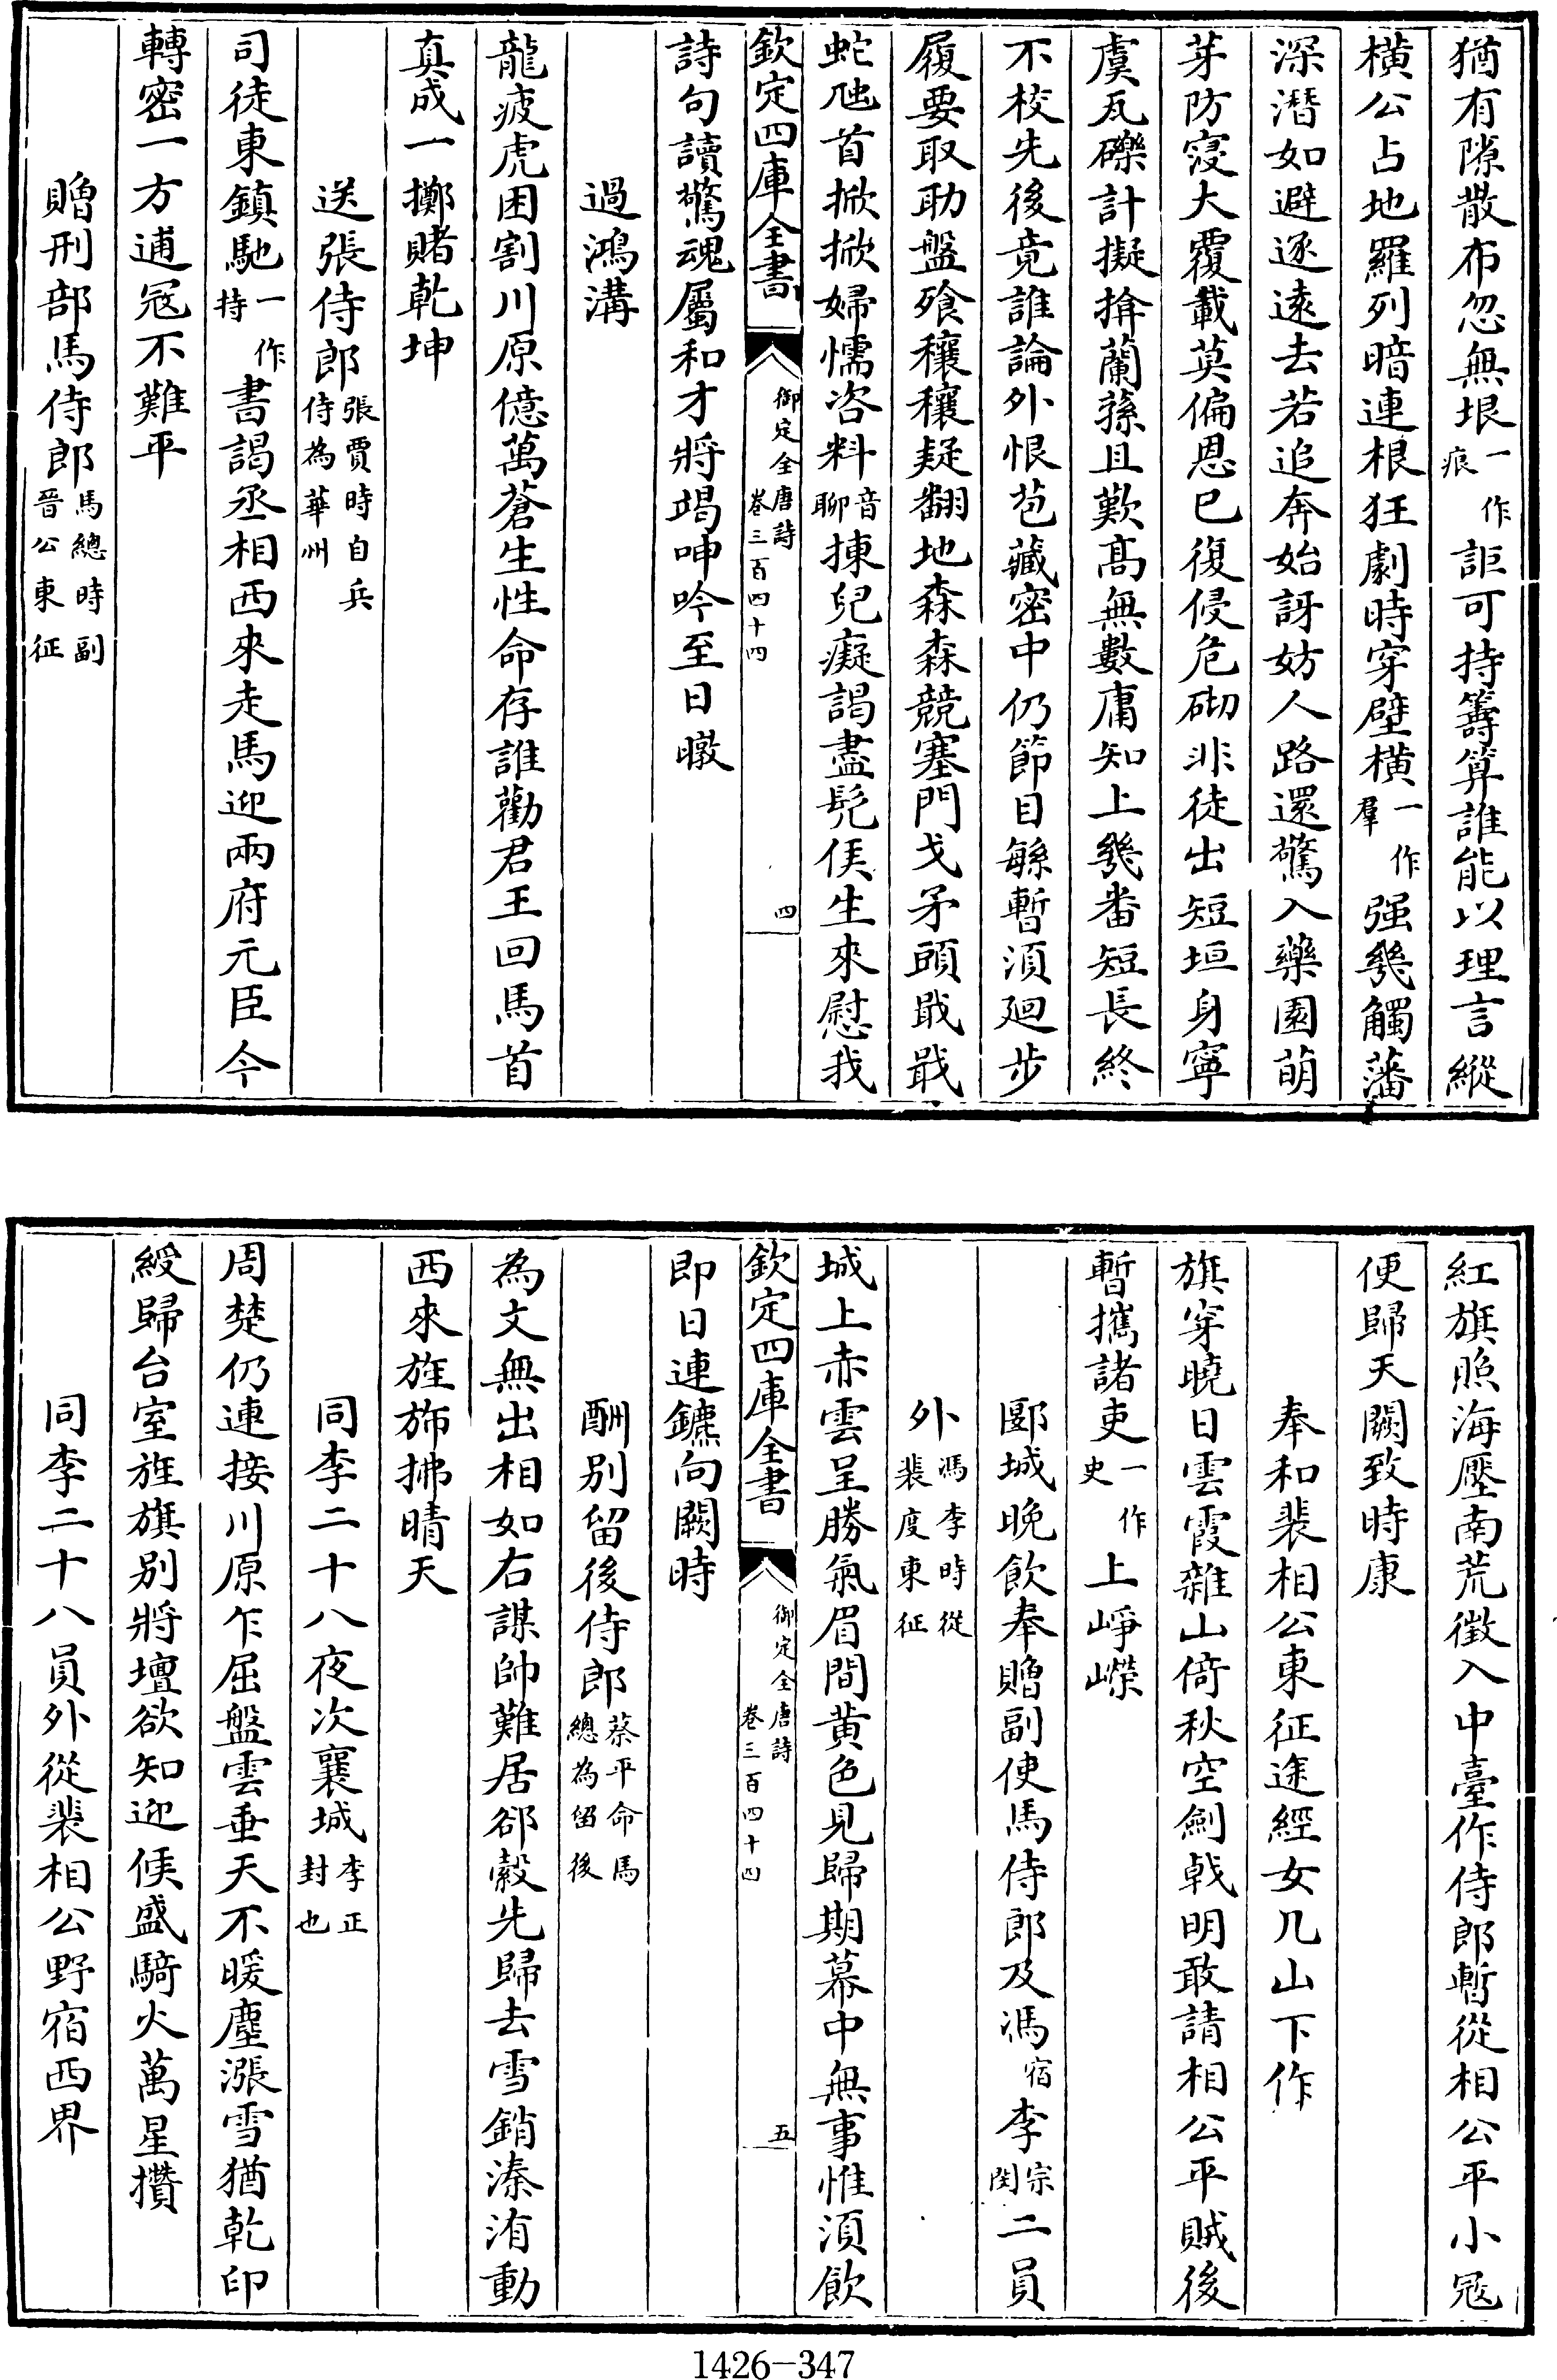 猶有隙散布忽無垠一作痕詎可持籌算誰能以理言縱
橫公占地羅列暗連根狂劇時穿壁橫一作羣强幾觸藩
深潛如避逐遠去若追奔始訝妨人路還驚入藥園萌
芽防寖大覆載莫偏恩已復侵危砌非徒出短垣身寧
虞瓦礫計擬揜蘭蓀且歎髙無數庸知上幾番短長終
不校先後竟誰論外恨苞藏密中仍節目繁暫須廻步
履要取助盤飱穰穰疑翻地森森競塞門戈矛頭戢戢
蛇虺首掀掀婦懦咨料音聊揀兒癡謁盡髠侯生來慰我
欽定四庫全書 御定全唐詩卷三百四十四 四
詩句讀驚魂屬和才將竭呻吟至日暾
過鴻溝
龍疲虎困割川原億萬蒼生性命存誰勸君王回馬首
真成一擲賭乾坤
送張侍郎張賈時自兵侍為華州
司徒東鎮馳一作持書謁丞相西來走馬迎兩府元臣今
轉密一方逋冦不難平
贈刑部馬侍郎馬總時副晉公東征
紅旗照海壓南荒徴入中臺作侍郎暫從相公平小冦
便歸天闕致時康
奉和裴相公東征途經女几山下作
旗穿曉日雲霞雜山倚秋空劍戟明敢請相公平賊後
暫攜諸吏一作史上崢嶸
郾城晚飲奉贈副使馬侍郎及馮宿李宗閔二員
外馮李時從裴度東征
城上赤雲呈勝氣眉間黄色見歸期幕中無事惟須飲
欽定四庫全書 御定全唐詩卷三百四十四 五
即日連鑣向闕時
酬别留後侍郎蔡平命馬總為留後
為文無出相如右謀帥難居郤縠先歸去雪銷溱洧動
西來旌斾拂晴天
同李二十八夜次襄城李正封也
周楚仍連接川原乍屈盤雲垂天不暖塵漲雪猶乾印
綬歸台室旌旗别將壇欲知迎候盛騎火萬星攢
同李二十八員外從裴相公野宿西界
1426-347